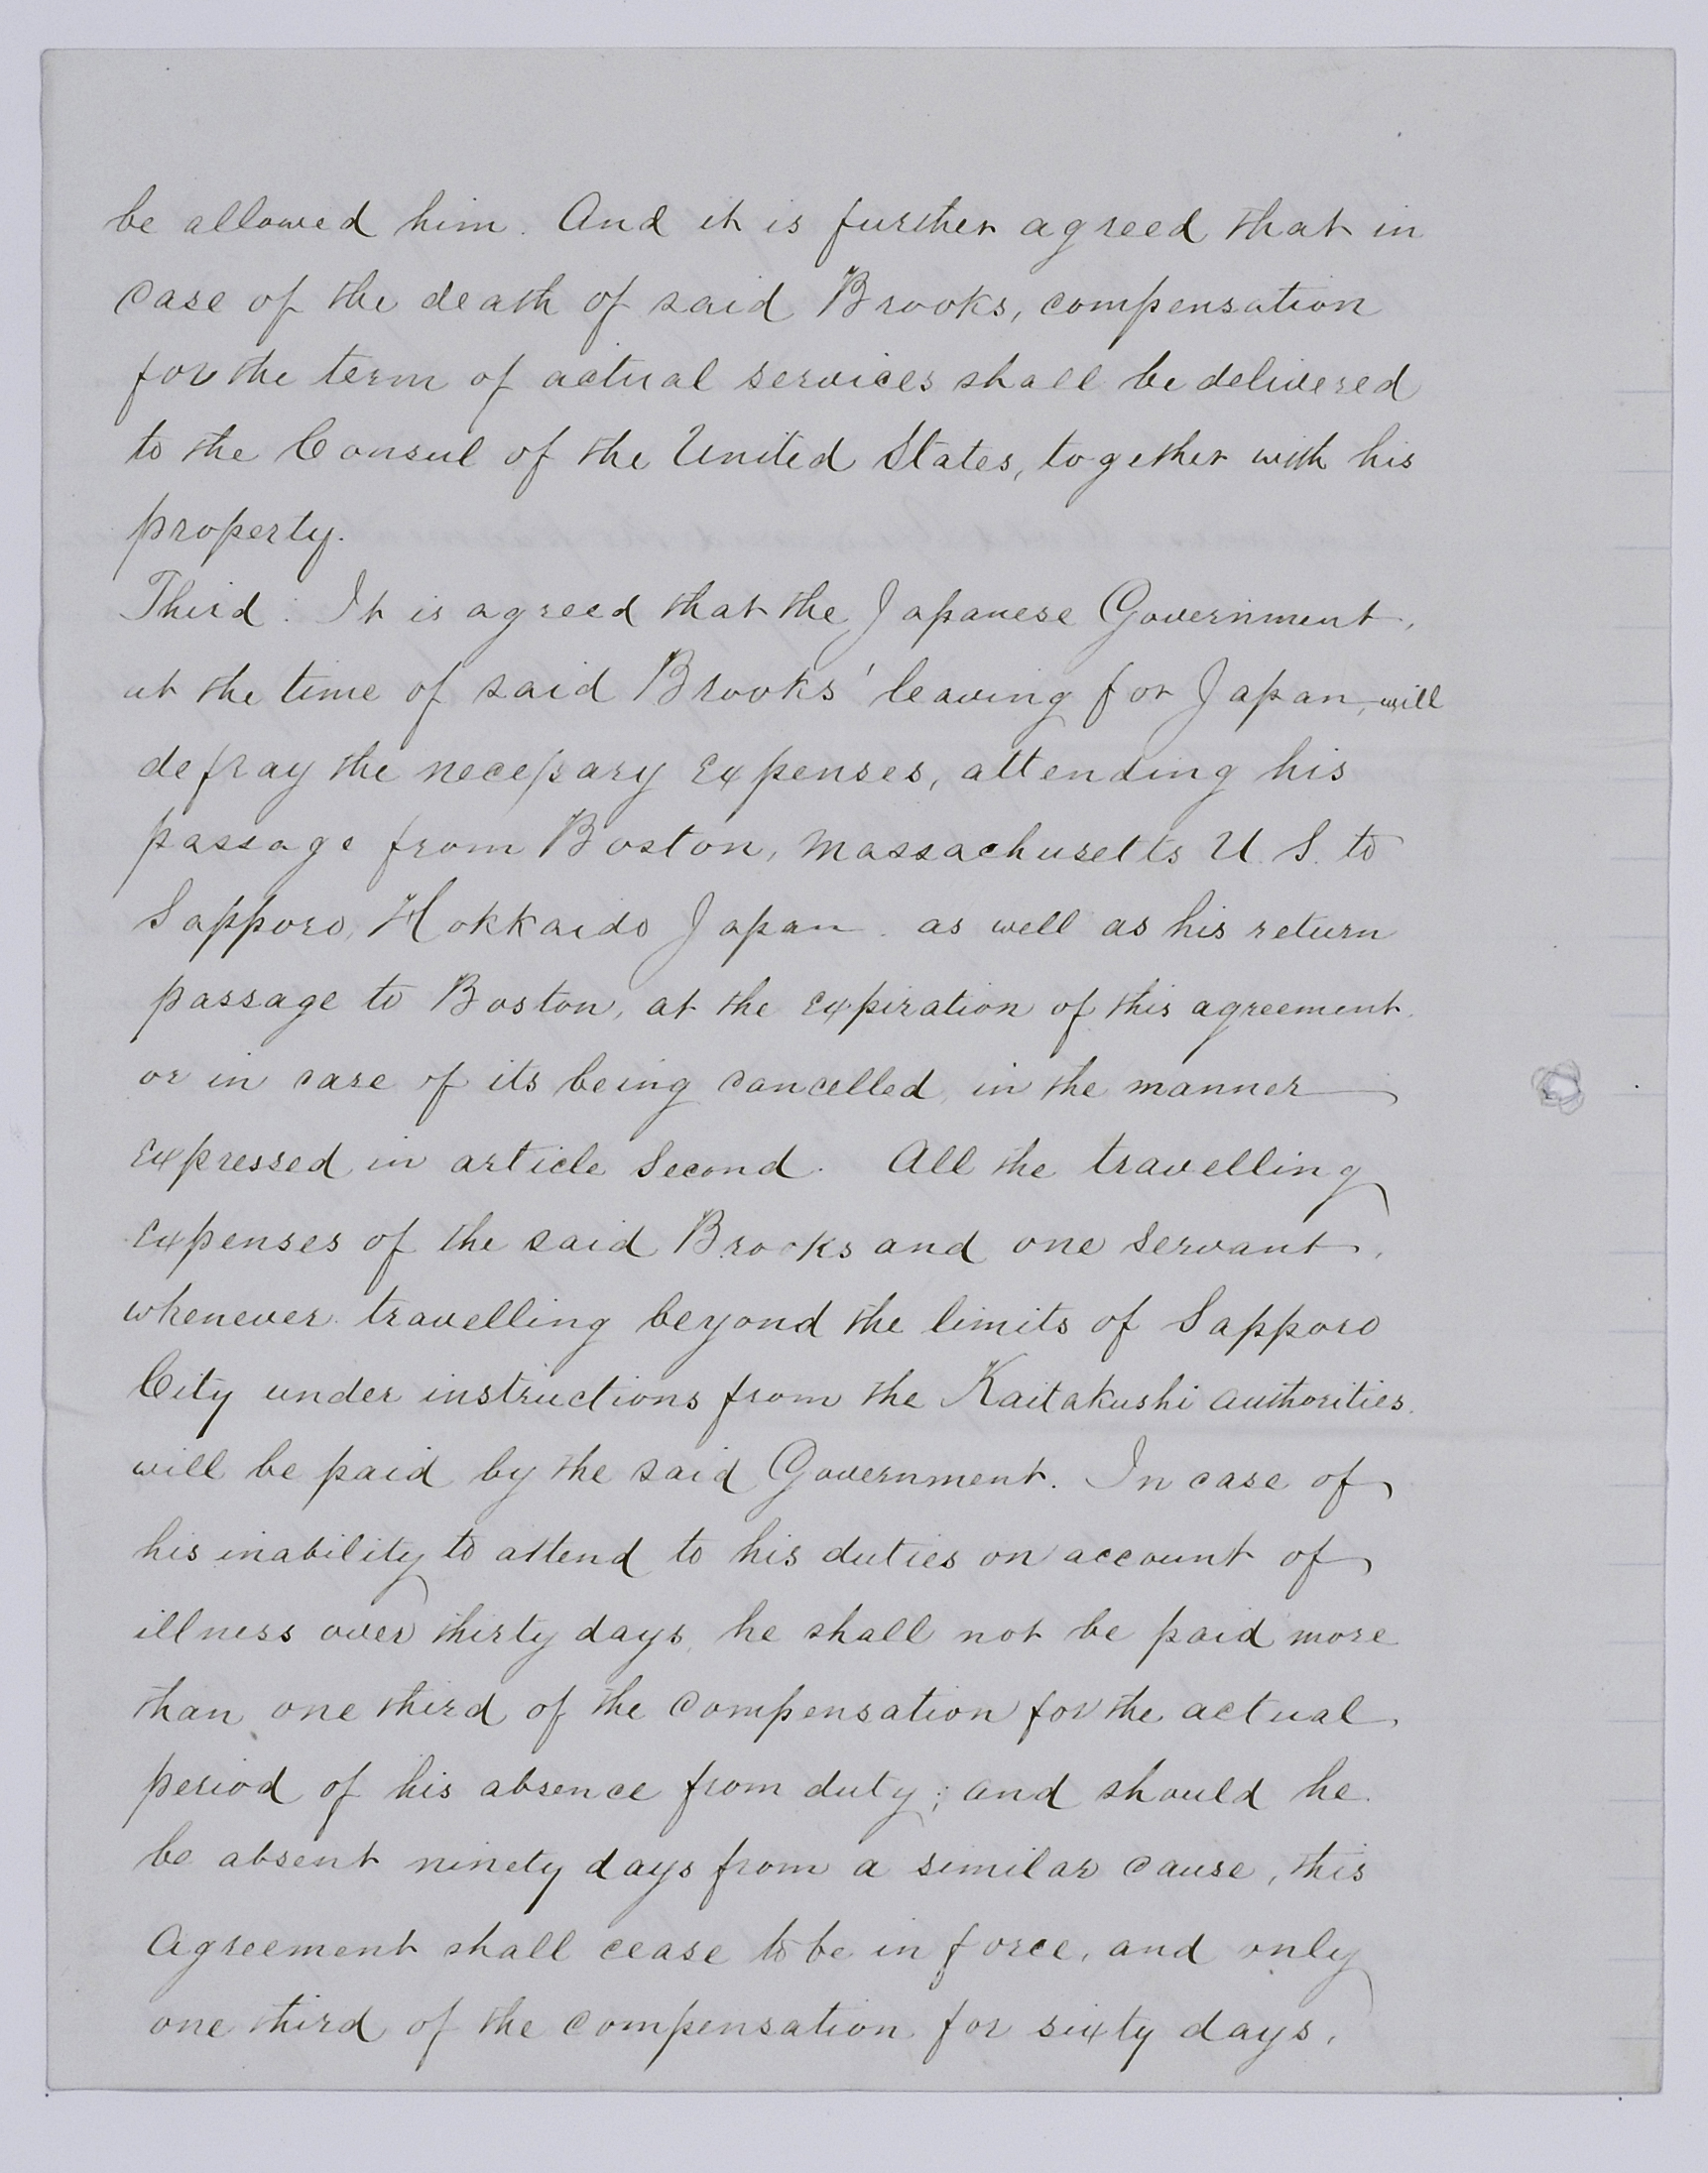 be allowed him. And it is further agreed that in
case of the death of said Brooks, compensation
for the term of actual services shall be delivered
to the Consul of the United States, together with his
property.
Third. It is agreed that the Japanese Government,
at the time of said Brooks' leaving for Japan, will
defray the necessary expenses, attending his
passage from Boston, Massachusetts U. S. to
Sapporo, Hokkaido Japan. as well as his return
passage to Boston, at the expiration of this agreement.
or in case of its being cancelled, in the manner
expressed in article Second. All the travelling
expenses of the said Brooks and one servant,
whenever travelling beyond the limits of Sapporo
City under instructions from the Kaitakushi authorities.
will be paid by the said Government. In case of
his inability to attend to his duties on account of
illness over thirty days, he shall not be paid more
than one third of the compensation for the actual
period of his absence from duty; and should he
be absent ninety days from a similar cause, this
Agreement shall cease to be in force, and only
one third of the compensation for sixty days,